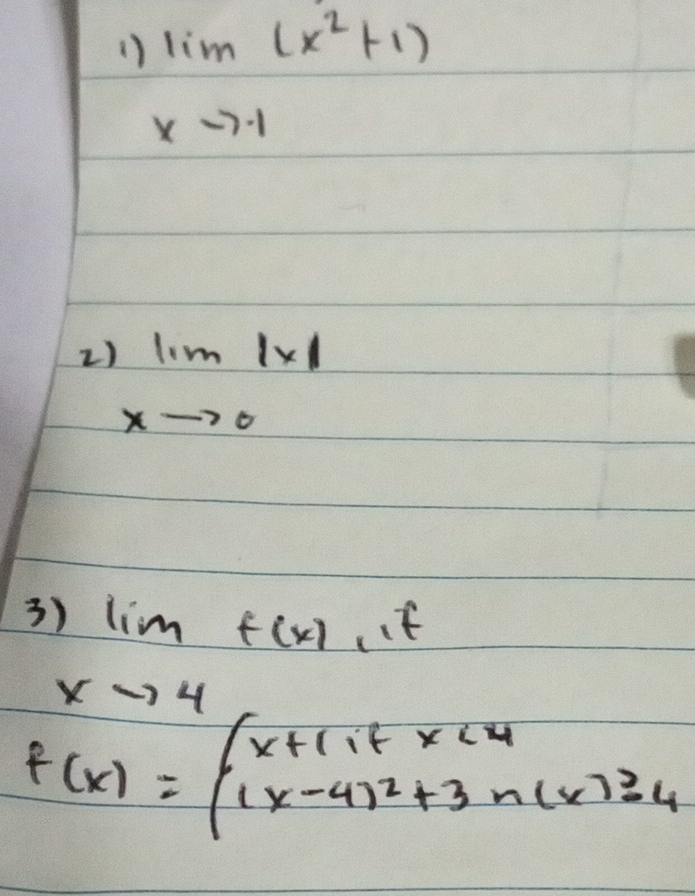 1) lim (x²+1)
x → -1
2) lim |x|
x → 0
3) lim f(x), if
x → 4
f(x) = { x+1 if x < 4
(x-4)²+3 n(x) ≥ 4